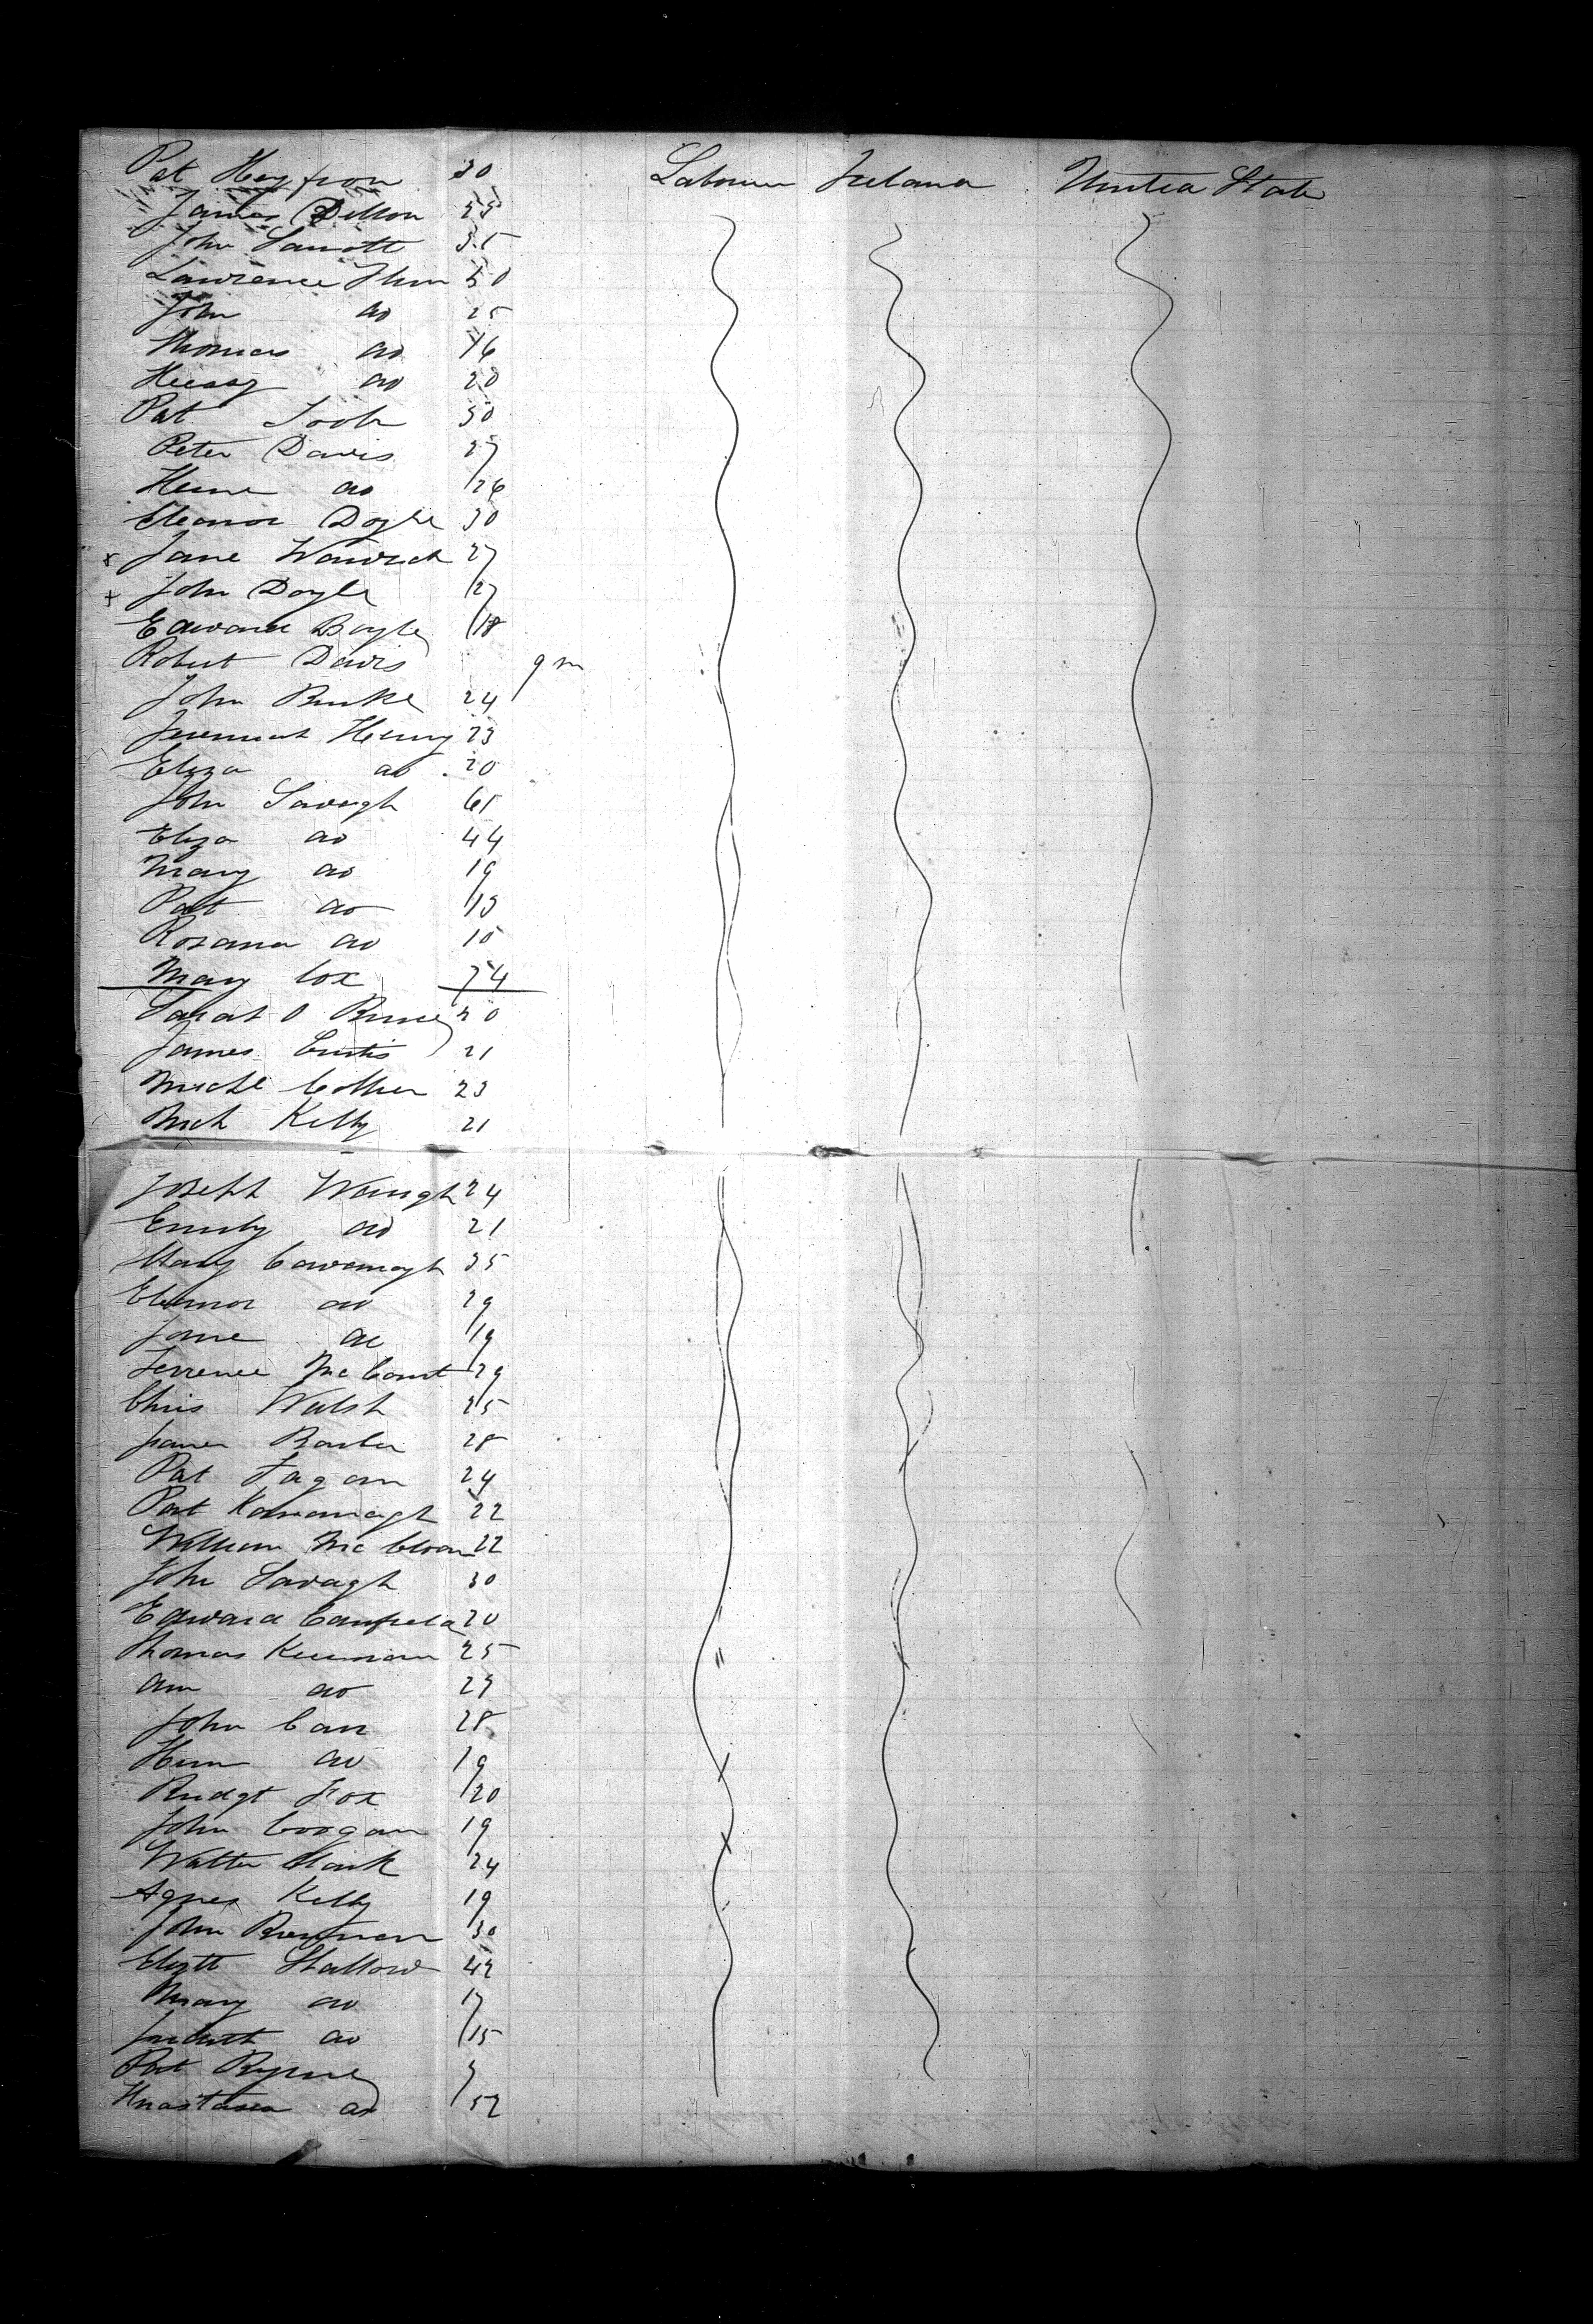 Pat Heyfron 30 Labourer Ireland United State
James Dillon 25
John Sarratt 35
Lawrence 50
John do 25
Thomas do 16
do 20
Pat 30
Peter Davis 27
do 26
Eleanor Doyle 30
x Jane 27
x John Doyle 27
Edward Boyle 18
Robert Davis 9 m
John Burke 24
Jeremiah Henry 23
Eliza do 20
John Savagh 65
Eliza do 44
Mary do 19
Pat do 13
Rosanna do 10
Mary Cox 74
Sarah O 20
James Curtis 21
Michl 23
Mich Kelly 21
Joseph Waugh 24
Emily do 21
Mary Cavanagh 35
Eleanor do 29
Jane do 19
Terrence McCourt 29
Chris Walsh 25
James 28
Pat Fagan 24
Pat Kavanagh 22
William Mc 22
John Savagh 30
Edward Canfield 20
Thomas 25
Ann do 29
John Carr 28
do 19
Bridgt Fox 20
John Coogan 19
Walter Clark 24
Agnes Kelly 19
John Brennan 30
Elizth 42
Mary do 17
Judith do 15
Pat Byrne
Anastasia do 52